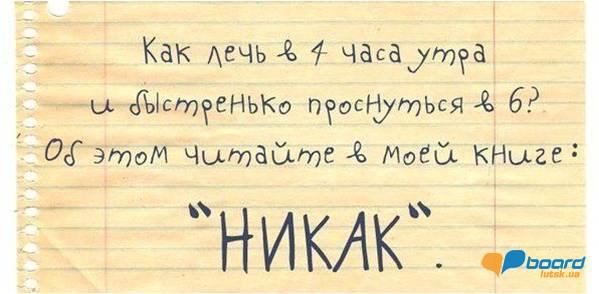 Как лечь в 4 часа утра
и быстренько проснуться в 6?
Об этом читайте в моей книге:
"НИКАК".
board
lutsk.ua